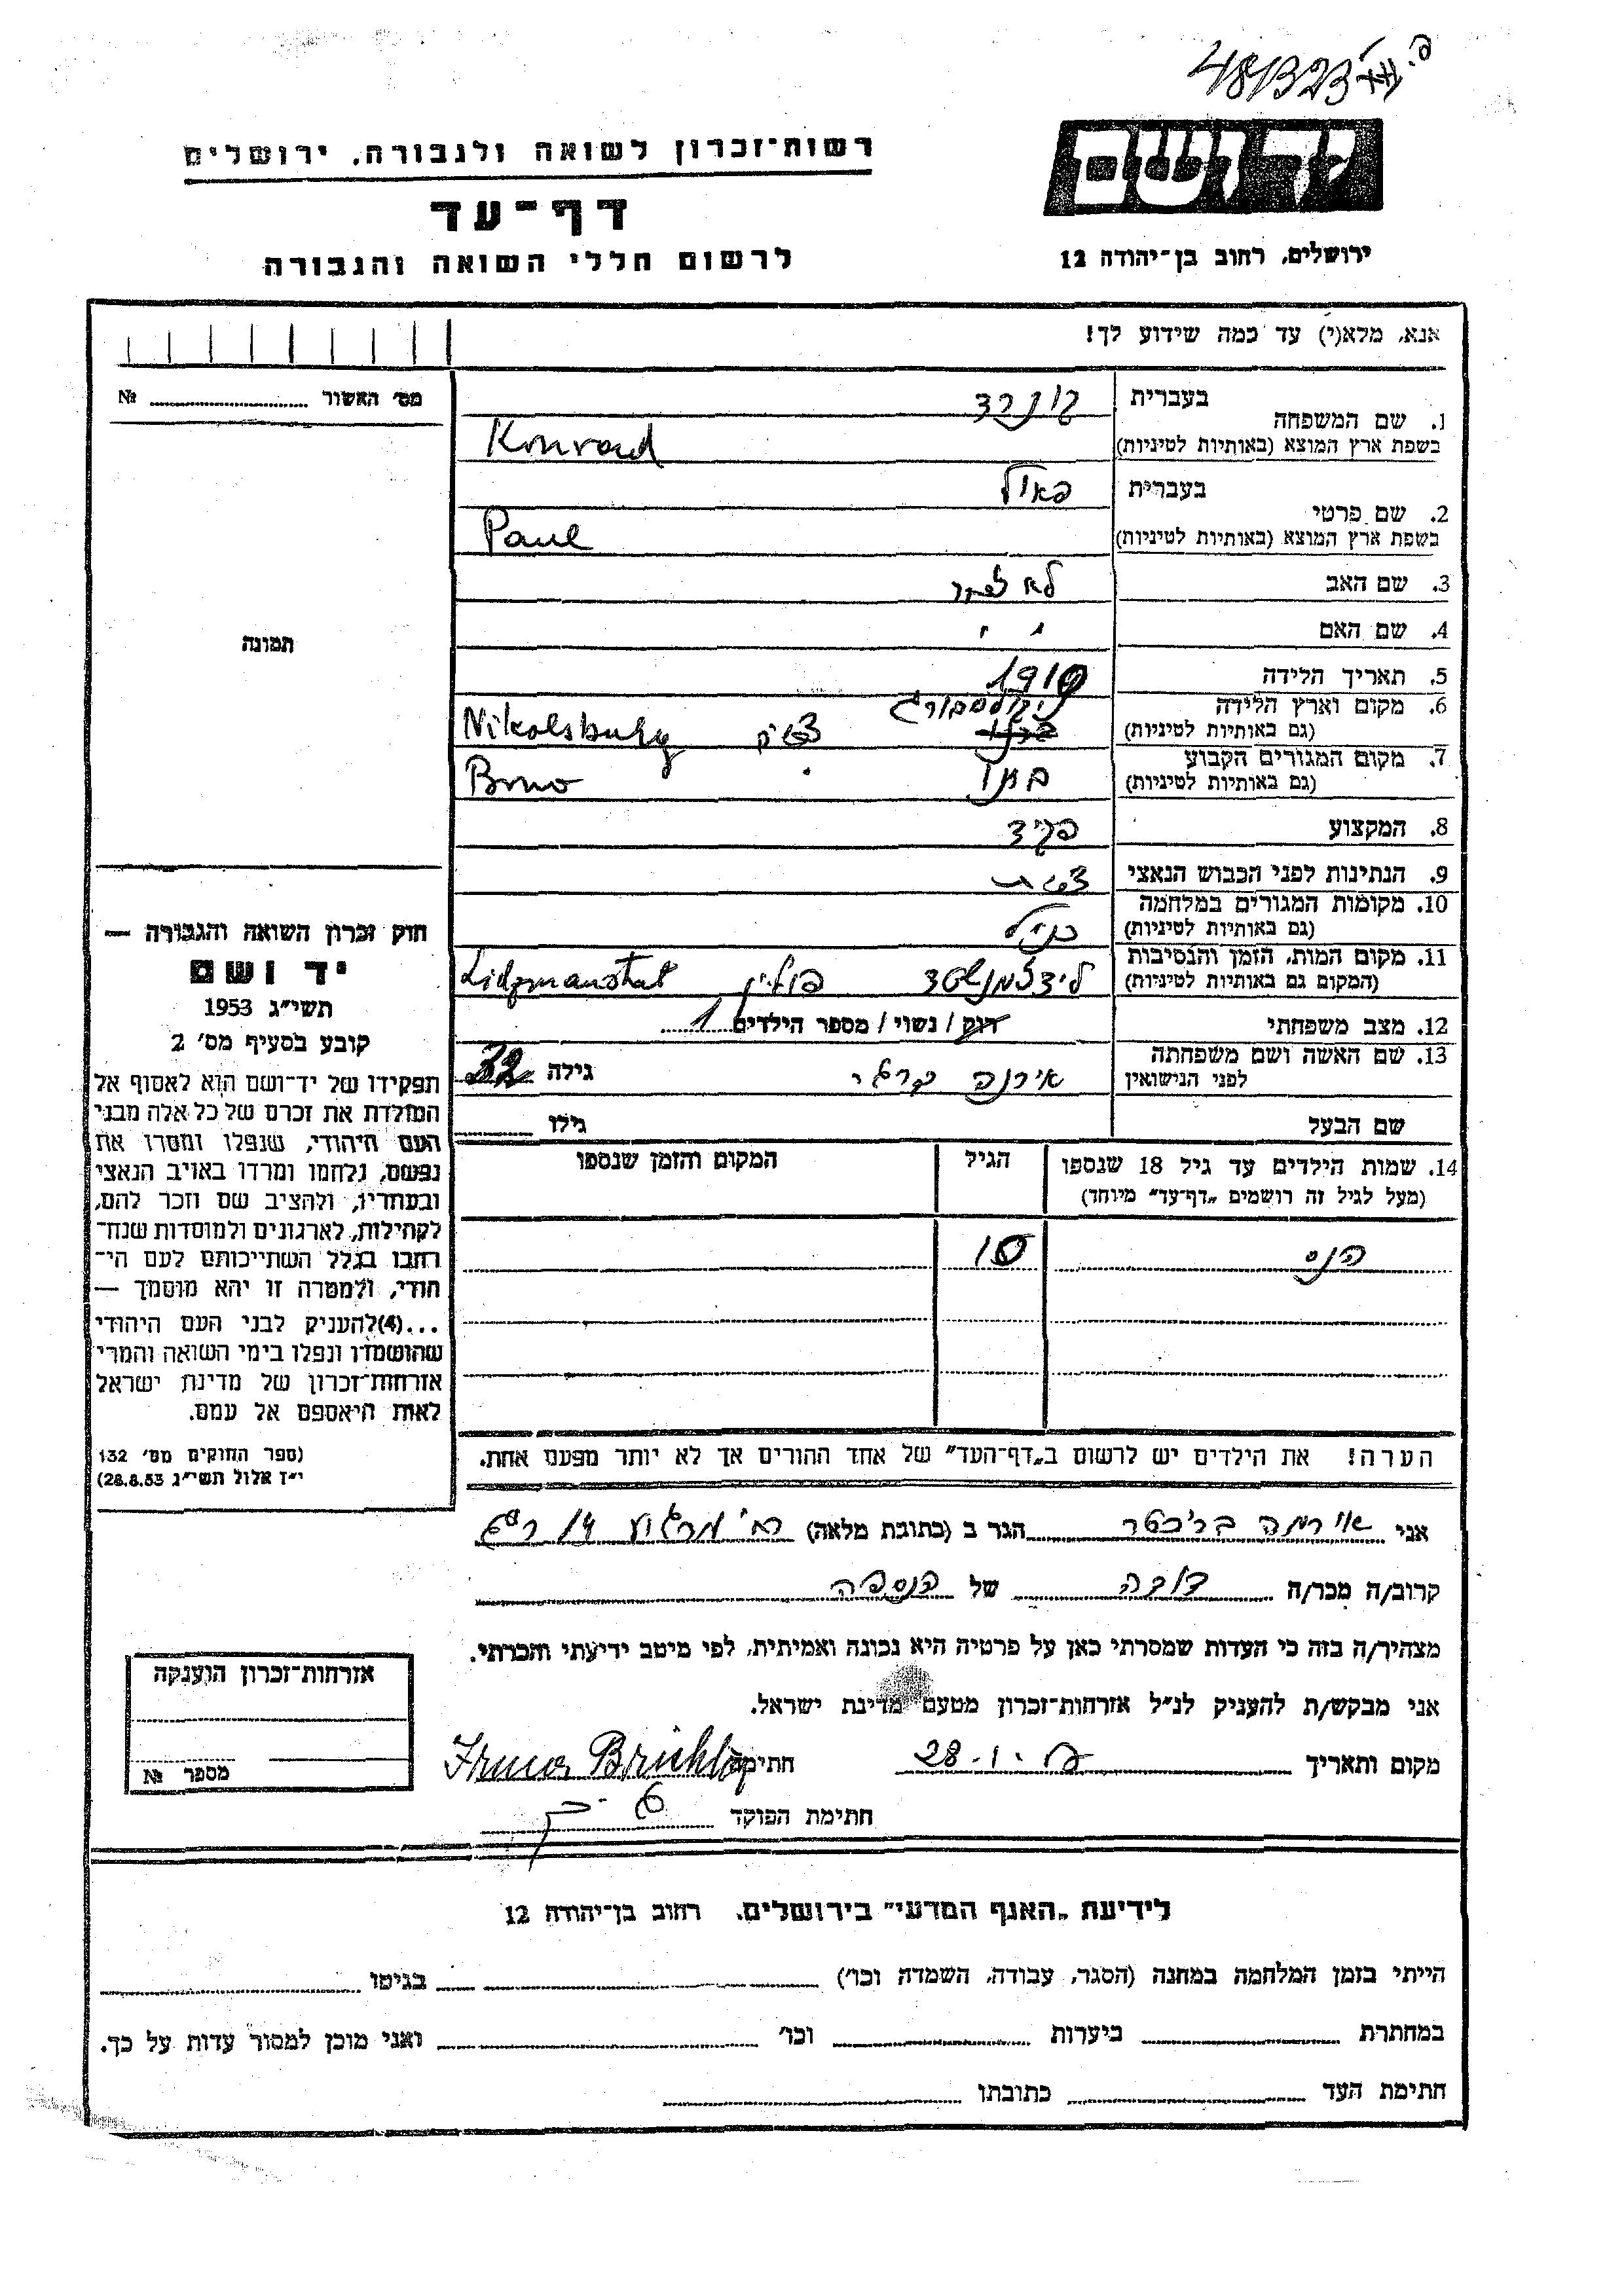 481323
רשות־זכרון לשואה ולגבורה, ירושלים
דף־עד
לרשום חללי השואה והגבורה
יד ושם
ירושלים, רחוב בן־יהודה 12
אנא, מלא(י) עד כמה שידוע לך!
מס׳ האשור № 
תמונה
1. שם המשפחה בעברית קונרד
בשפת ארץ המוצא (באותיות לטיניות) Konrad
2. שם פרטי בעברית פאול
בשפת ארץ המוצא (באותיות לטיניות) Paul
3. שם האב לא
4. שם האם
5. תאריך הלידה 1910
6. מקום וארץ הלידה ניקולסבורג
(גם באותיות לטיניות) Nikolsburg
7. מקום המגורים הקבוע ברנו
(גם באותיות לטיניות) Brno
8. המקצוע פקיד
9. הנתינות לפני הכבוש הנאצי
10. מקומות המגורים במלחמה כנ״ל
(גם באותיות לטיניות)
11. מקום המות, הזמן והנסיבות
(המקום גם באותיות לטיניות) לידצמנשטד פולין Lidzmanstat
12. מצב משפחתי רוק / נשוי / מספר הילדים 1
13. שם האשה ושם משפחתה
לפני הנישואין אירנה גילה 32
שם הבעל גילו
14. שמות הילדים עד גיל 18 שנספו הגיל המקום והזמן שנספו
(מעל לגיל זה רושמים „דף־עד״ מיוחד)
הנס 10
הערה! את הילדים יש לרשום ב„דף־העד״ של אחד ההורים אך לא יותר מפעם אחת.
חוק זכרון השואה והגבורה —
יד ושם
תשי״ג 1953
קובע בסעיף מס׳ 2
תפקידו של יד־ושם הוא לאסוף אל
המולדת את זכרם של כל אלה מבני
העם היהודי, שנפלו ומסרו את
נפשם, נלחמו ומרדו באויב הנאצי
ובעוזריו, ולהציב שם וזכר להם,
לקהילות, לארגונים ולמוסדות שנח־
רבו בגלל השתייכותם לעם הי־
הודי, ולמטרה זו יהא מוסמך —
...(4)להעניק לבני העם היהודי
שהושמדו ונפלו בימי השואה והמרי
אזרחות־זכרון של מדינת ישראל
לאות היאספם אל עמם.
(ספר החוקים מס׳ 132
י״ז אלול תשי״ג 28.8.53)
אני אירמה בריכטר הגר ב (כתובת מלאה) רח׳ מרגוע 14 ר״ג
קרוב/ה מכר/ה דודה של הנספה
מצהיר/ה בזה כי העדות שמסרתי כאן על פרטיה היא נכונה ואמיתית, לפי מיטב ידיעתי והכרתי.
אני מבקש/ת להעניק לנ״ל אזרחות־זכרון מטעם מדינת ישראל.
מקום ותאריך 28.1. חתימה Irma Brichter
חתימת הפוקד
אזרחות־זכרון הוענקה
מספר №
לידיעת „האגף המדעי״ בירושלים, רחוב בן־יהודה 12
הייתי בזמן המלחמה במחנה (הסגר, עבודה, השמדה וכו׳) בגיטו
במחתרת ביערות וכו׳ ואני מוכן למסור עדות על כך.
חתימת העד כתובתו